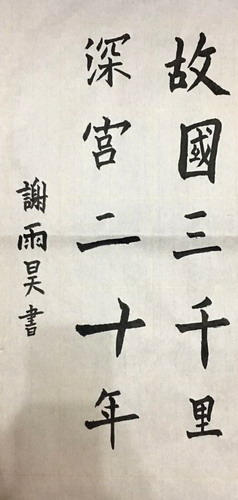 故國三千里
深宮二十年
謝雨昊書